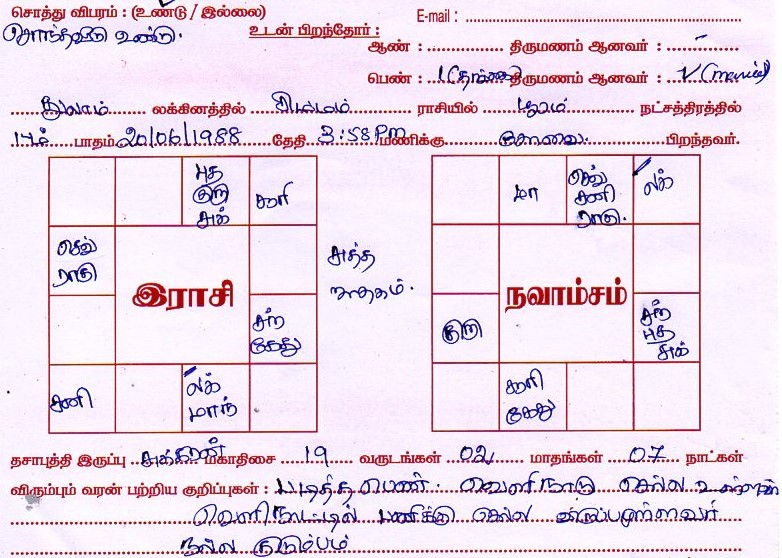 சொத்து விபரம் : (உண்டு / இல்லை) E-mail :
சொந்தவீடு உண்டு. உடன் பிறந்தோர் :
ஆண் : திருமணம் ஆனவர் : -
பெண் : 1 (தங்கை) திருமணம் ஆனவர் : (married)
துலாம் லக்கினத்தில் சிம்மம் ராசியில் பூரம் நட்சத்திரத்தில்
1ம் பாதம் 20/06/1988 தேதி 3:58 PM மணிக்கு கோவை பிறந்தவர்.
புத குரு சுக் சூரி
செவ் ராகு
இராசி
சந் கேது
சனி லக் மாந்
சுத்த ஜாதகம்.
மா செவ் சனி ராகு. லக்
நவாம்சம்
குரு சந் புத சுக்
சூரி கேது
தசாபுத்தி இருப்பு சுக்கிரன் மகாதிசை 19 வருடங்கள் 02 மாதங்கள் 07 நாட்கள்
விரும்பும் வரன் பற்றிய குறிப்புகள் : படித்த பெண். வெளிநாடு செல்ல உள்ளவர்
வெளிநாட்டில் பணிக்கு செல்ல விருப்பமுள்ளவர்
நல்ல குடும்பம்